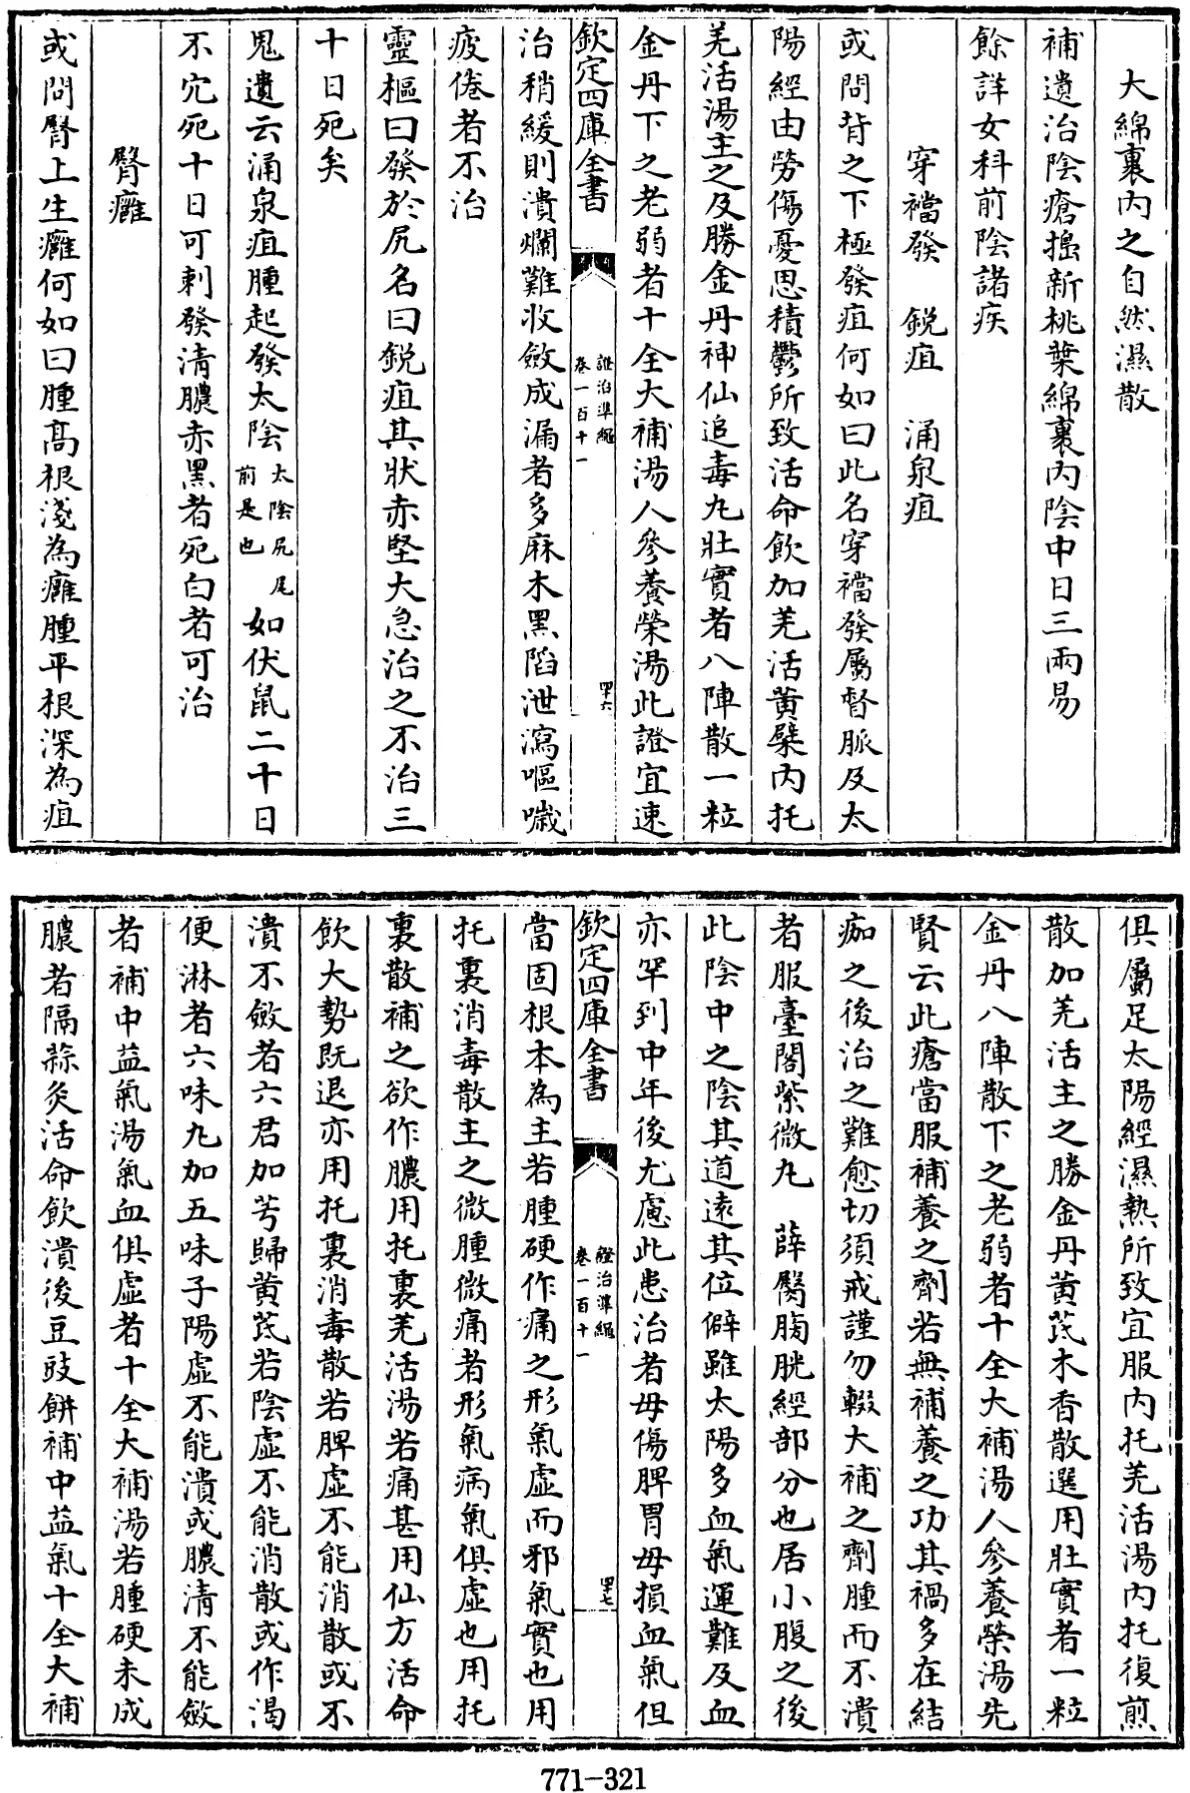 大綿裏内之自然濕散
補遺治陰瘡搗新桃葉綿裏内陰中日三兩易
餘詳女科前陰諸疾
穿襠發　鋭疽　涌泉疽
或問背之下極發疽何如曰此名穿襠發屬督脈及太
陽經由勞傷憂思積鬱所致活命飲加羌活黄蘖内托
羌活湯主之及勝金丹神仙追毒丸壯實者八陣散一粒
金丹下之老弱者十全大補湯人參養榮湯此證宜速
欽定四庫全書
證治準繩
卷一百十一
四十六
治稍緩則潰爛難收斂成漏者多麻木黑陷泄瀉嘔噦
疲倦者不治
靈樞曰發於尻名曰鋭疽其狀赤堅大急治之不治三
十日死矣
鬼遺云涌泉疽腫起發太陰太陰尻尾前是也如伏鼠二十日
不穴死十日可刺發清膿赤黑者死白者可治
臀癰
或問臀上生癰何如曰腫高根淺為癰腫平根深為疽
俱屬足太陽經濕熱所致宜服内托羌活湯内托復煎
散加羌活主之勝金丹黄芪木香散選用壯實者一粒
金丹八陣散下之老弱者十全大補湯人參養榮湯先
賢云此瘡當服補養之劑若無補養之功其禍多在結
痂之後治之難愈切須戒謹勿輟大補之劑腫而不潰
者服臺閣紫微丸　薛臀膀胱經部分也居小腹之後
此陰中之陰其道遠其位僻雖太陽多血氣運難及血
亦罕到中年後尤慮此患治者毋傷脾胃毋損血氣但
欽定四庫全書
證治準繩
卷一百十一
四十七
當固根本為主若腫硬作痛之形氣虛而邪氣實也用
托裏消毒散主之微腫微痛者形氣病氣俱虛也用托
裏散補之欲作膿用托裏羌活湯若痛甚用仙方活命
飲大勢既退亦用托裏消毒散若脾虛不能消散或不
潰不斂者六君加芎歸黄芪若陰虛不能消散或作渴
便淋者六味丸加五味子陽虛不能潰或膿清不能斂
者補中益氣湯氣血俱虛者十全大補湯若腫硬未成
膿者隔蒜灸活命飲潰後豆豉餅補中益氣十全大補
771-321